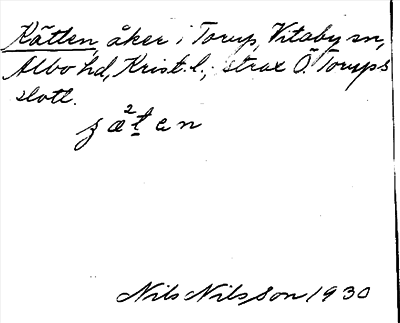 Kätten, åker i Torup, Vitaby sn,
Albo hd, Krist. l., strax Ö. Torups
slott.
Nils Nilsson 1930